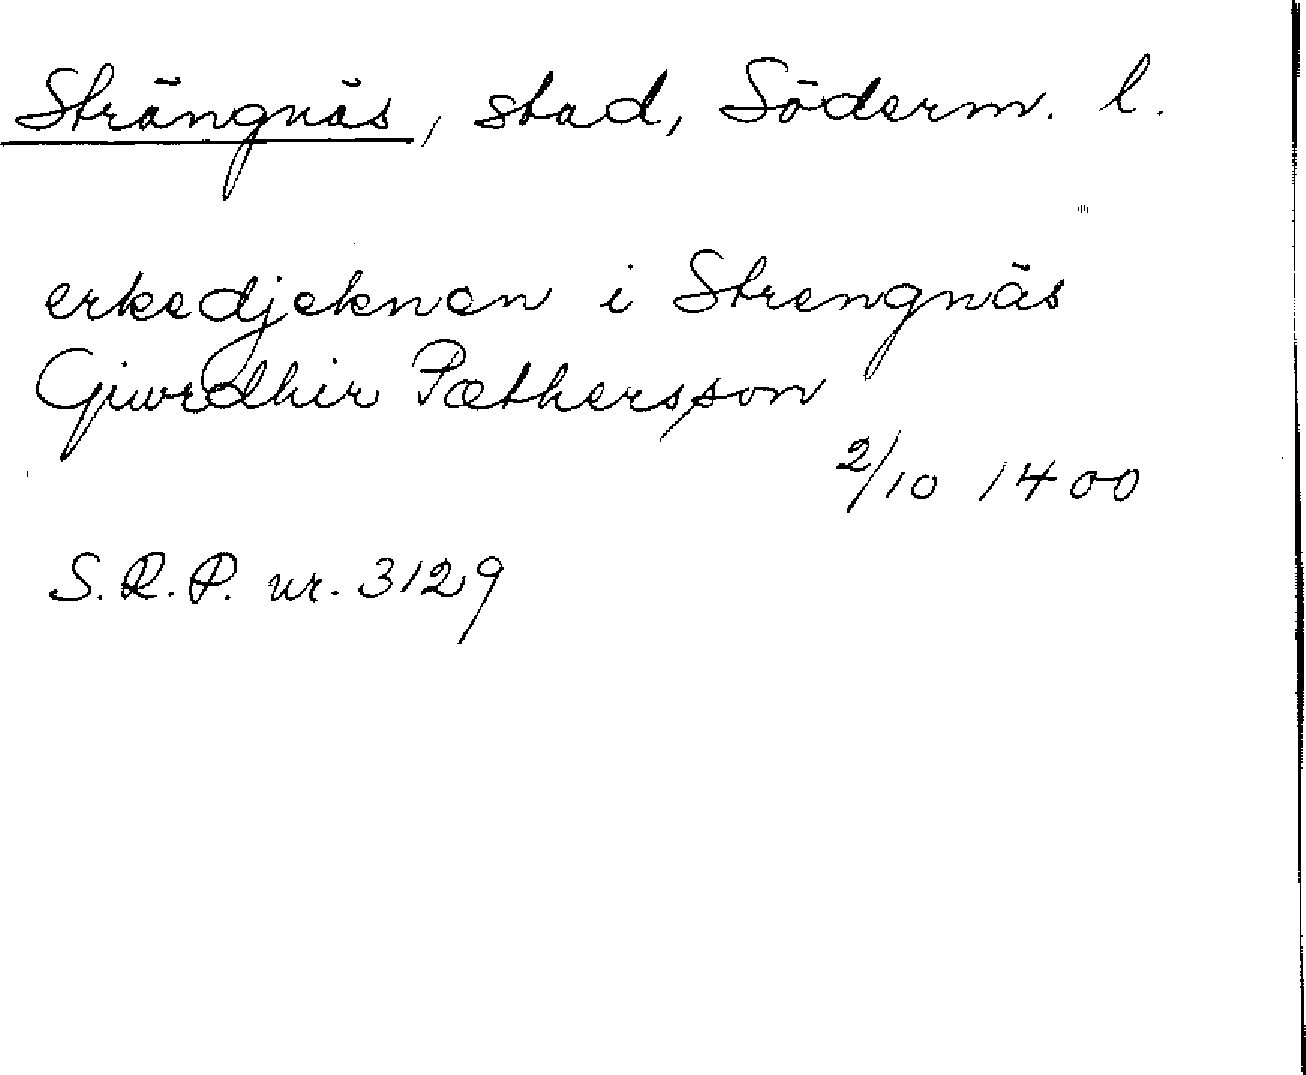 Strängnäs, stad, Söderm. l.
erkedjeknen i Strengnäs
Giwrdhir Pæthersson
2/10 1400
S.R.P. nr. 3129